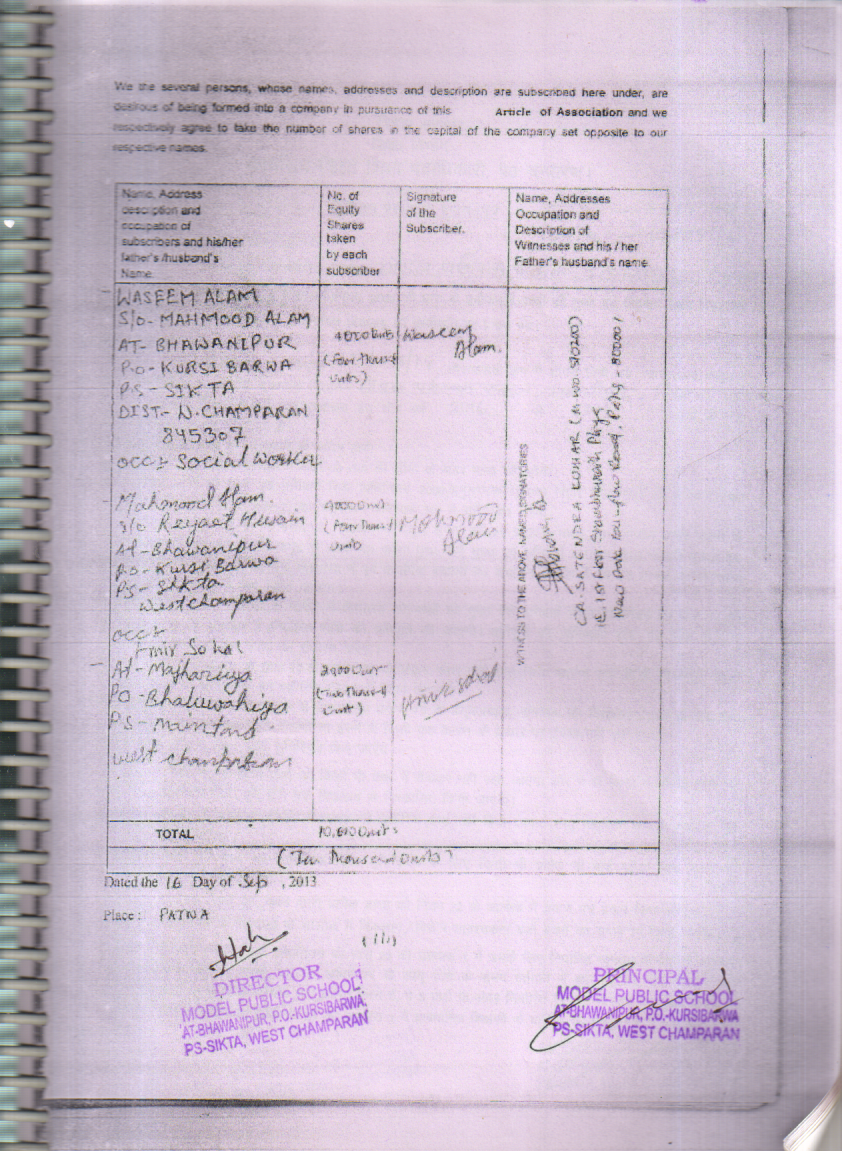 We the several persons, whose names, addresses and description are subscribed here under, are
desirous of being formed into a company in pursuance of this Article of Association and we
respectively agree to take the number of shares in the capital of the company set opposite to our
respective names.
Name, Address
description and
occupation of
subscribers and his/her
father's /husband's
Name
No. of
Equity
Shares
taken
by each
subscriber
Signature
of the
Subscriber.
Name, Addresses
Occupation and
Description of
Witnesses and his / her
Father's husband's name
WASEEM ALAM
S/o- MAHMOOD ALAM
AT- BHAWANIPUR
P.O- KURSI BARWA
PS- SIKTA
DIST- W.CHAMPARAN
845307
OCC: Social Worker
4000
(Four Thousand
Units)
Waseem
Alam.
Mahmood Alam.
S/o
At- Bhawanipur
P.o- Kursi Barwa
PS- Sikta
West champaran
Occ:
(Four Thousand
Units
Mahmood
Alam
At-
PO-
PS-
West champaran
(Two Thousand
Unit)
WITNESS TO THE ABOVE NAMED SIGNATORIES
CA. SATENDRA KUMAR (M.NO. 510200)
1st Floor
Road, Patna - 800001
TOTAL
(Ten Thousand Units)
Dated the 16 Day of Sep , 2013
Place : PATNA
DIRECTOR
MODEL PUBLIC SCHOOL
AT-BHAWANIPUR, P.O.-KURSIBARWA,
PS-SIKTA, WEST CHAMPARAN
PRINCIPAL
MODEL PUBLIC SCHOOL
AT-BHAWANIPUR, P.O.-KURSIBARWA
PS-SIKTA, WEST CHAMPARAN